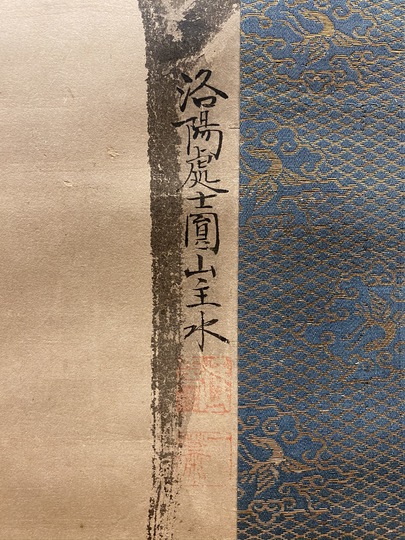 洛陽處士圓山主水